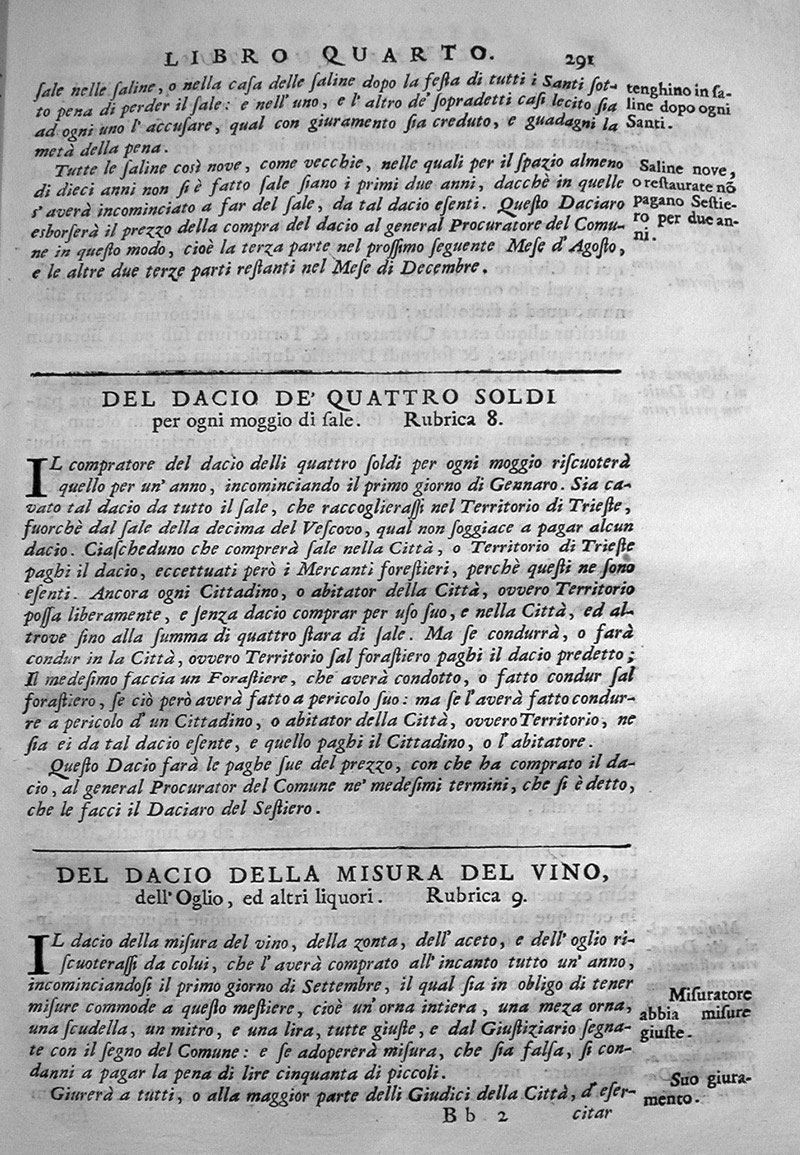 LIBRO QUARTO. 291
ſale nelle ſaline, o nella caſa delle ſaline dopo la feſta di tutti i Santi ſot-
to pena di perder il ſale: e nell' uno, e l' altro de' ſopradetti caſi lecito ſia
ad ogni uno l' accuſare, qual con giuramento ſia creduto, e guadagni la
metà della pena.
tenghino in ſa-
line dopo ogni
Santi.
Tutte le ſaline così nove, come vecchie, nelle quali per il ſpazio almeno
di dieci anni non ſi è fatto ſale ſiano i primi due anni, dacchè in quelle
s' averà incominciato a far del ſale, da tal dacio eſenti. Queſto Daciaro
esborſerà il prezzo della compra del dacio al general Procuratore del Comu-
ne in queſto modo, cioè la terza parte nel proſſimo ſeguente Meſe d' Agoſto,
e le altre due terze parti reſtanti nel Meſe di Decembre.
Saline nove,
o reſtaurate nõ
pagano Seſtie-
ro per due an-
ni.
DEL DACIO DE' QUATTRO SOLDI
per ogni moggio di ſale. Rubrica 8.
IL compratore del dacio delli quattro ſoldi per ogni moggio riſcuoterà
quello per un' anno, incominciando il primo giorno di Gennaro. Sia ca-
vato tal dacio da tutto il ſale, che raccoglieraſſi nel Territorio di Trieſte,
fuorchè dal ſale della decima del Veſcovo, qual non ſoggiace a pagar alcun
dacio. Ciaſcheduno che comprerà ſale nella Città, o Territorio di Trieſte
paghi il dacio, eccettuati però i Mercanti foreſtieri, perchè queſti ne ſono
eſenti. Ancora ogni Cittadino, o abitator della Città, ovvero Territorio
poſſa liberamente, e ſenza dacio comprar per uſo ſuo, e nella Città, ed al-
trove ſino alla ſumma di quattro ſtara di ſale. Ma ſe condurrà, o farà
condur in la Città, ovvero Territorio ſal foraſtiero paghi il dacio predetto;
Il medeſimo faccia un Foraſtiere, che averà condotto, o fatto condur ſal
foraſtiero, ſe ciò però averà fatto a pericolo ſuo: ma ſe l' averà fatto condur-
re a pericolo d' un Cittadino, o abitator della Città, ovvero Territorio, ne
ſia ei da tal dacio eſente, e quello paghi il Cittadino, o l' abitatore.
Queſto Dacio farà le paghe ſue del prezzo, con che ha comprato il da-
cio, al general Procurator del Comune ne' medeſimi termini, che ſi è detto,
che le facci il Daciaro del Seſtiero.
DEL DACIO DELLA MISURA DEL VINO,
dell' Oglio, ed altri liquori. Rubrica 9.
IL dacio della miſura del vino, della zonta, dell' aceto, e dell' oglio ri-
ſcuoteraſſi da colui, che l' averà comprato all' incanto tutto un' anno,
incominciandoſi il primo giorno di Settembre, il qual ſia in obligo di tener
miſure commode a queſto meſtiere, cioè un' orna intiera, una meza orna,
una ſcudella, un mitro, e una lira, tutte giuſte, e dal Giuſtiziario ſegna-
te con il ſegno del Comune: e ſe adopererà miſura, che ſia falſa, ſi con-
danni a pagar la pena di lire cinquanta di piccoli.
Miſuratore
abbia miſure
giuſte.
Giurerà a tutti, o alla maggior parte delli Giudici della Città, d' eſer-
Suo giura-
mento.
B b 2 citar